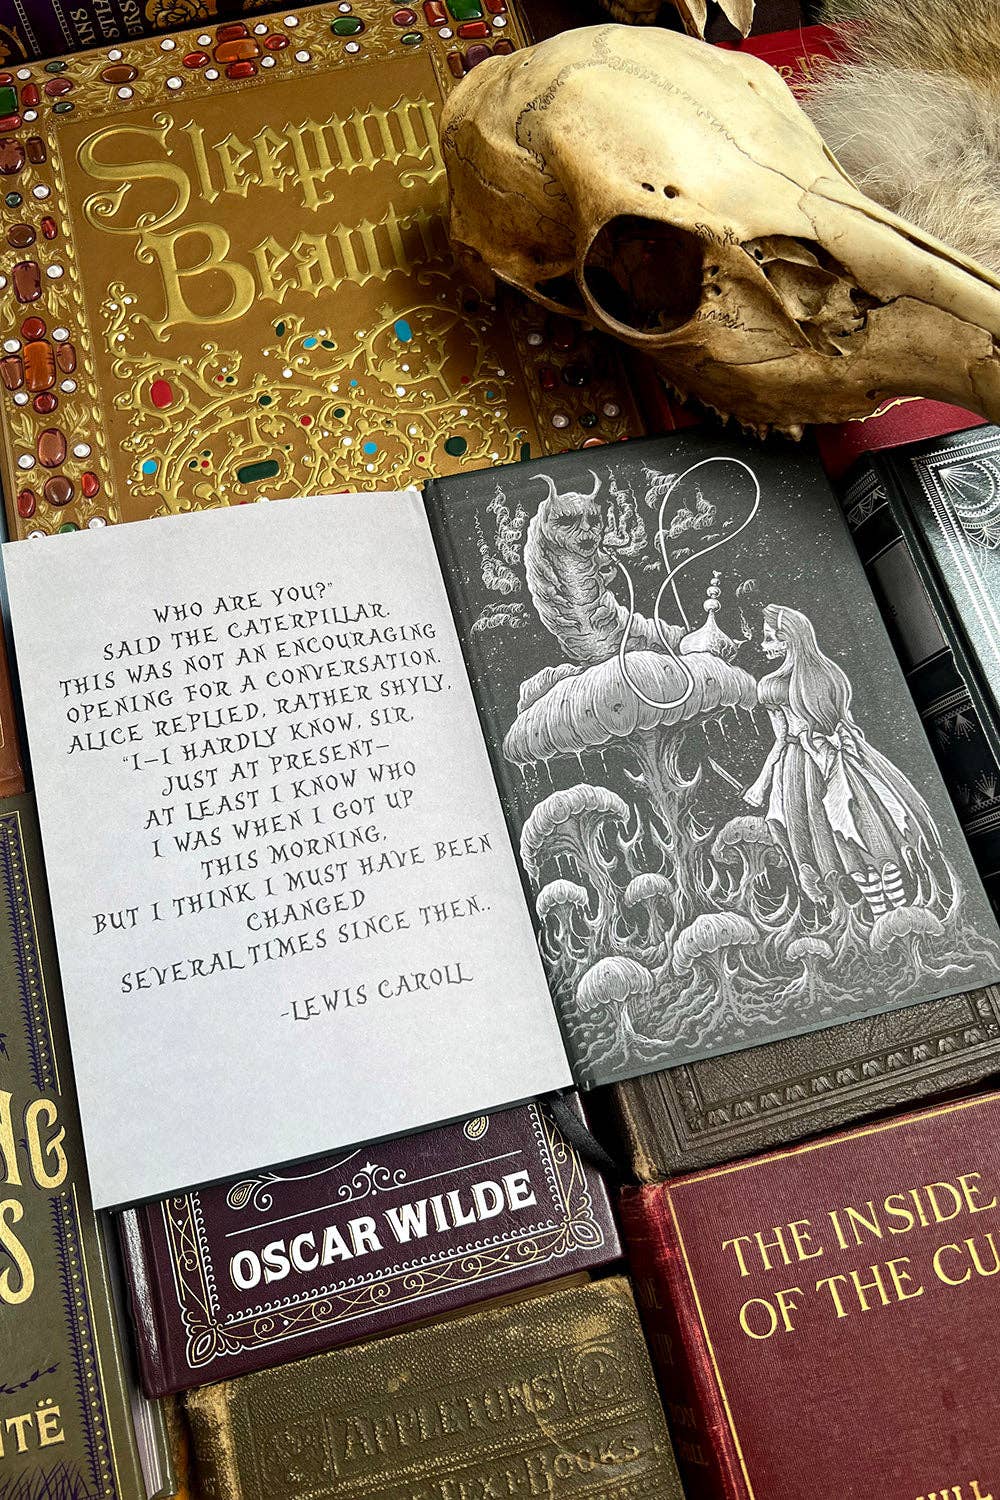 Sleeping
Beauty
WHO ARE YOU?"
SAID THE CATERPILLAR.
THIS WAS NOT AN ENCOURAGING
OPENING FOR A CONVERSATION.
ALICE REPLIED, RATHER SHYLY,
"I—I HARDLY KNOW, SIR,
JUST AT PRESENT—
AT LEAST I KNOW WHO
I WAS WHEN I GOT UP
THIS MORNING,
BUT I THINK I MUST HAVE BEEN
CHANGED
SEVERAL TIMES SINCE THEN..
-LEWIS CAROLL
OSCAR WILDE
THE INSIDE
OF THE CU
APPLETONS'
BOOKS